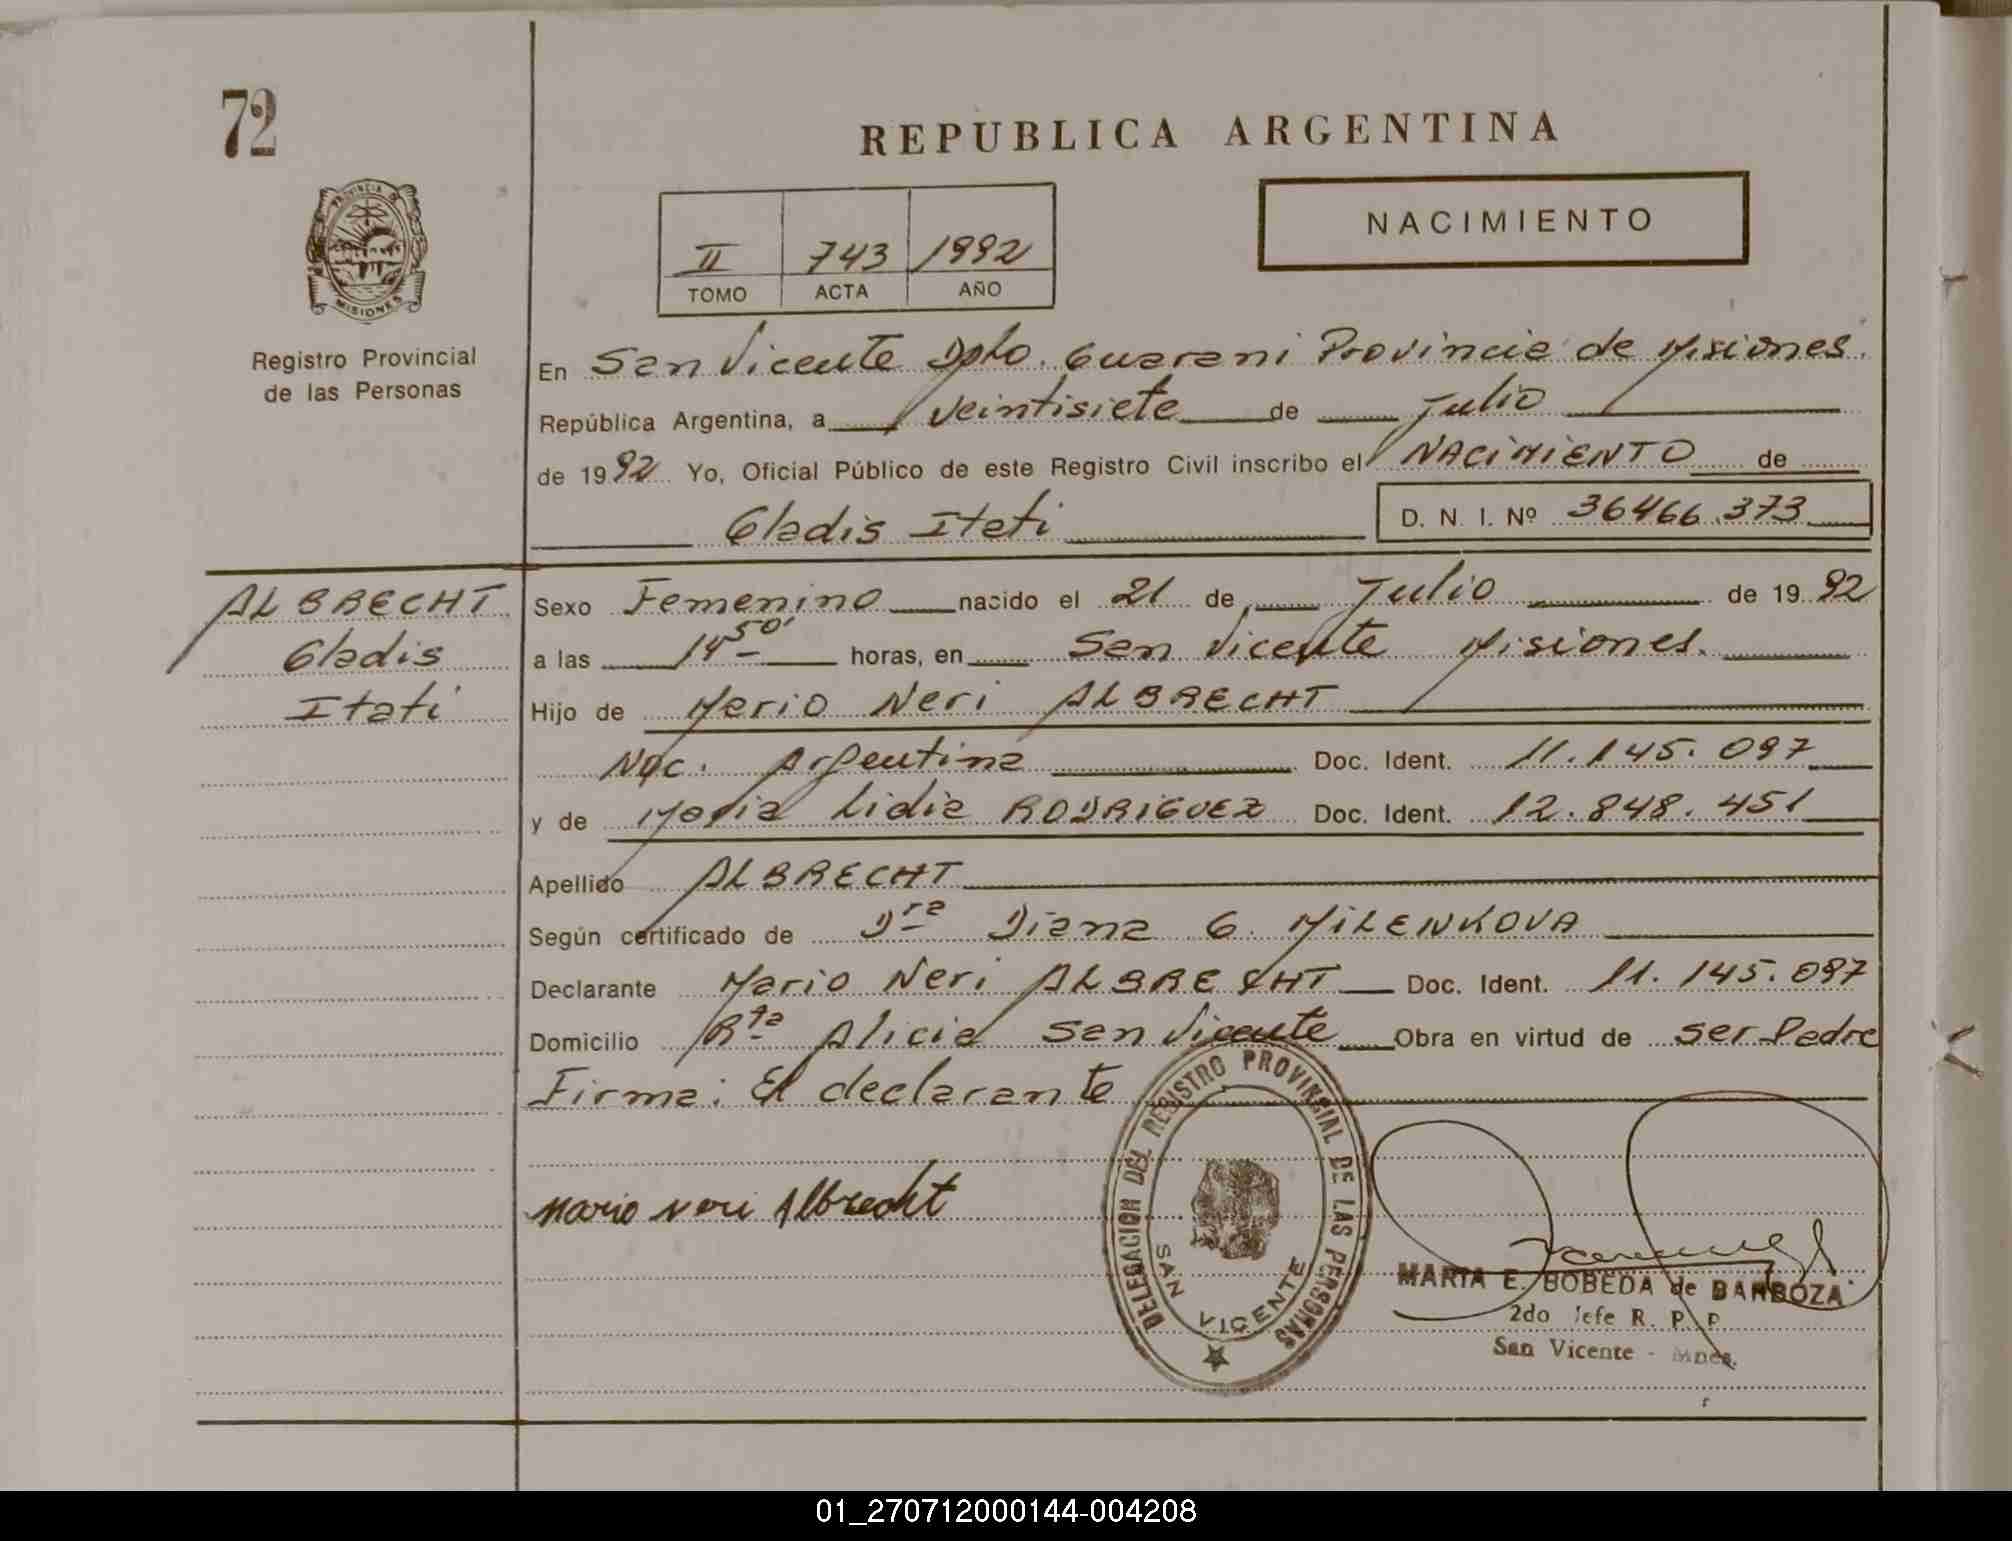 72
REPUBLICA ARGENTINA
PROVINCIA DE
MISIONES
II 743 1992
TOMO ACTA AÑO
NACIMIENTO
Registro Provincial
de las Personas
En San Vicente Dpto. Guarani Provincia de Misiones.
República Argentina, a veintisiete de Julio
de 1992 Yo, Oficial Público de este Registro Civil inscribo el NACIMIENTO de
Gladis Itati D. N. I. Nº 36466.373
ALBRECHT
Gladis
Itati
Sexo Femenino nacido el 21 de Julio de 1992
a las 14 50' horas, en San Vicente Misiones.
Hijo de Mario Neri ALBRECHT
Nac. Argentina Doc. Ident. 11.145.097
y de Maria Lidia RODRIGUEZ Doc. Ident. 12.848.451
Apellido ALBRECHT
Según certificado de Dra Diana G. MILENKOVA
Declarante Mario Neri ALBRECHT Doc. Ident. 11.145.097
Domicilio Rta Alicia San Vicente Obra en virtud de ser Padre
Firma: El declarante
Mario Neri Albrecht
DELEGACION DEL REGISTRO PROVINCIAL DE LAS PERSONAS
SAN VICENTE
MARIA E. BOBEDA de BARBOZA
2do Jefe R. P. P.
San Vicente - Mnes.
01_270712000144-004208